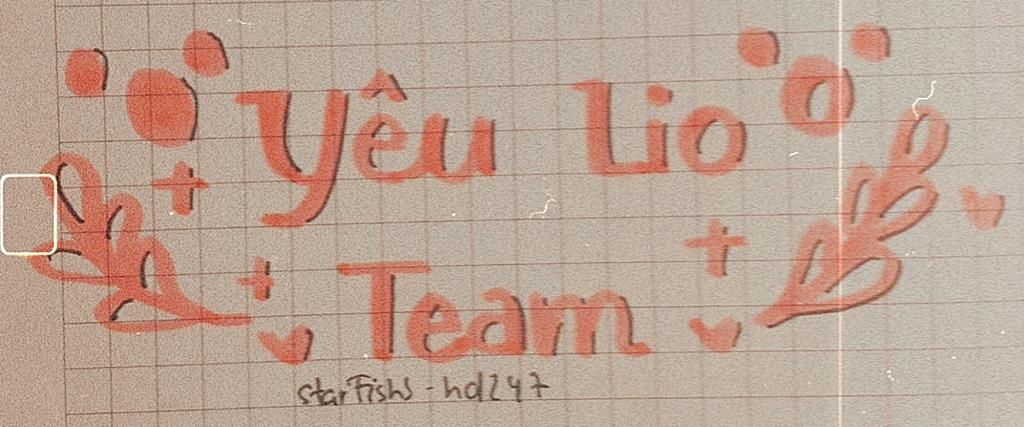 Yêu Lio
Team
starFishs - hd247